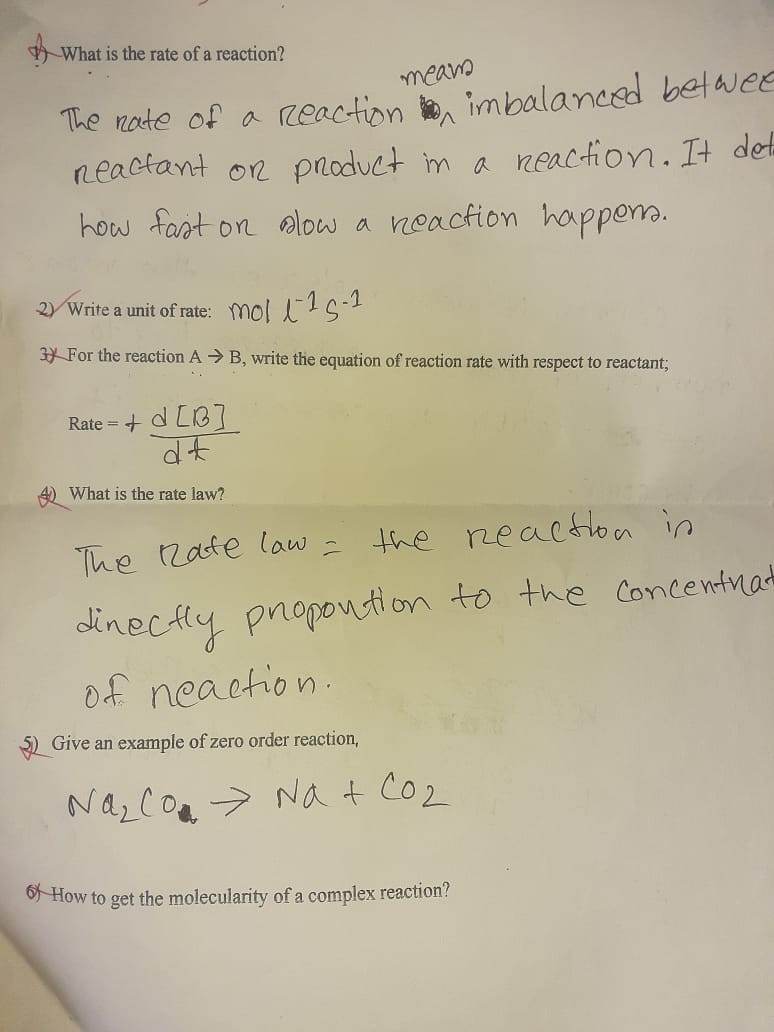 1) What is the rate of a reaction?
means
The rate of a reaction imbalanced betwee
reactant or product in a reaction. It det
how fast or slow a reaction happens.
2) Write a unit of rate: mol l⁻¹ s⁻¹
3) For the reaction A → B, write the equation of reaction rate with respect to reactant;
Rate = + d[B]
dt
4) What is the rate law?
The Rate law = the reaction is
directly proportion to the concentrat
of reaction.
5) Give an example of zero order reaction,
Na₂CO → Na + CO₂
6) How to get the molecularity of a complex reaction?